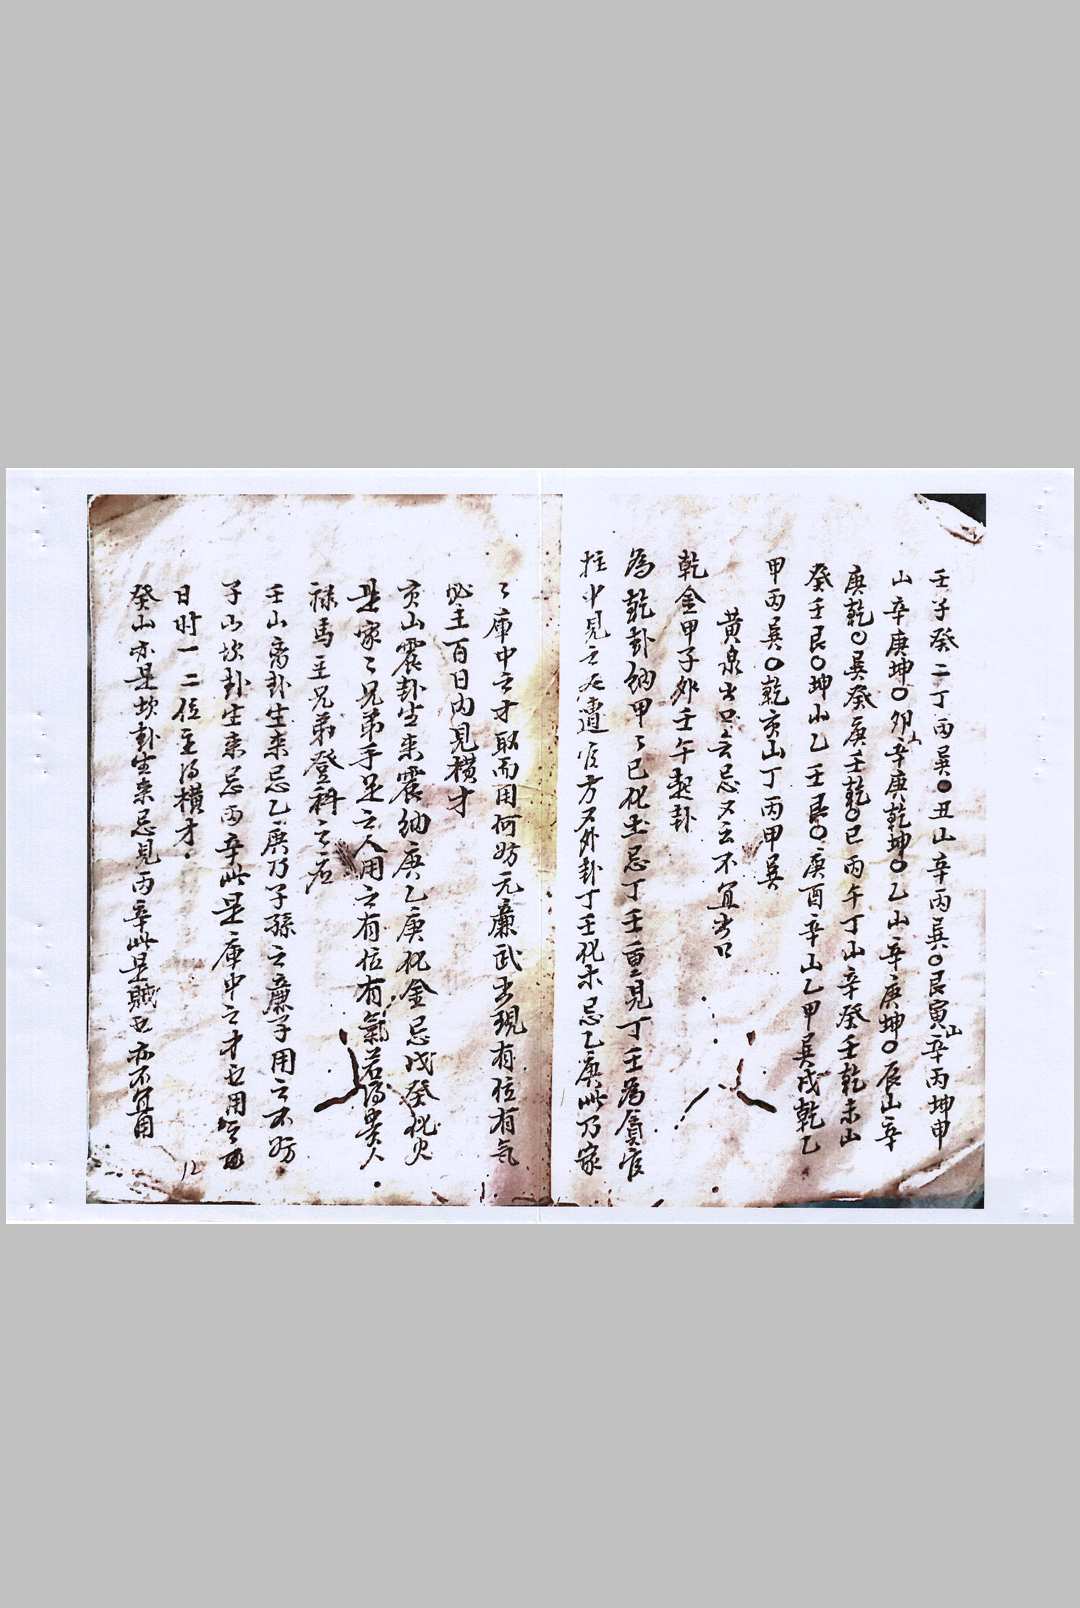 壬子癸二丁丙巽○丑山辛丙巽○艮寅山辛丙坤申
山辛庚坤○卯山辛庚乾坤○乙山辛庚坤○辰山辛
庚乾○巽癸庚壬乾○巳丙午丁山辛癸壬乾未山
癸壬艮○坤山乙壬艮○庚酉辛山乙甲巽戌乾乙
甲丙巽○乾亥山丁丙甲巽
黄泉出口 忌又云不宜出口
乾金甲子外壬午起卦
為乾卦纳甲〻己化土忌丁壬重見丁壬為 官
柱中見之 遭官方又外卦丁壬化木忌乙庚此乃家
〻庫中之才取而用何妨元廉武出現有位有气
必主百日内見横才
亥山震卦生来震纳庚乙庚化金忌戊癸化火
是家〻兄弟手足之人用之有位有氣若得贵人
禄馬主兄弟登科之应
壬山离卦生来忌乙庚乃子孫之廉子用之不妨
子山坎卦生来忌丙辛此是庫中之才也用
日时一二位主得横才.
癸山亦是坎卦生来忌見丙辛此是賊也亦不宜用
12